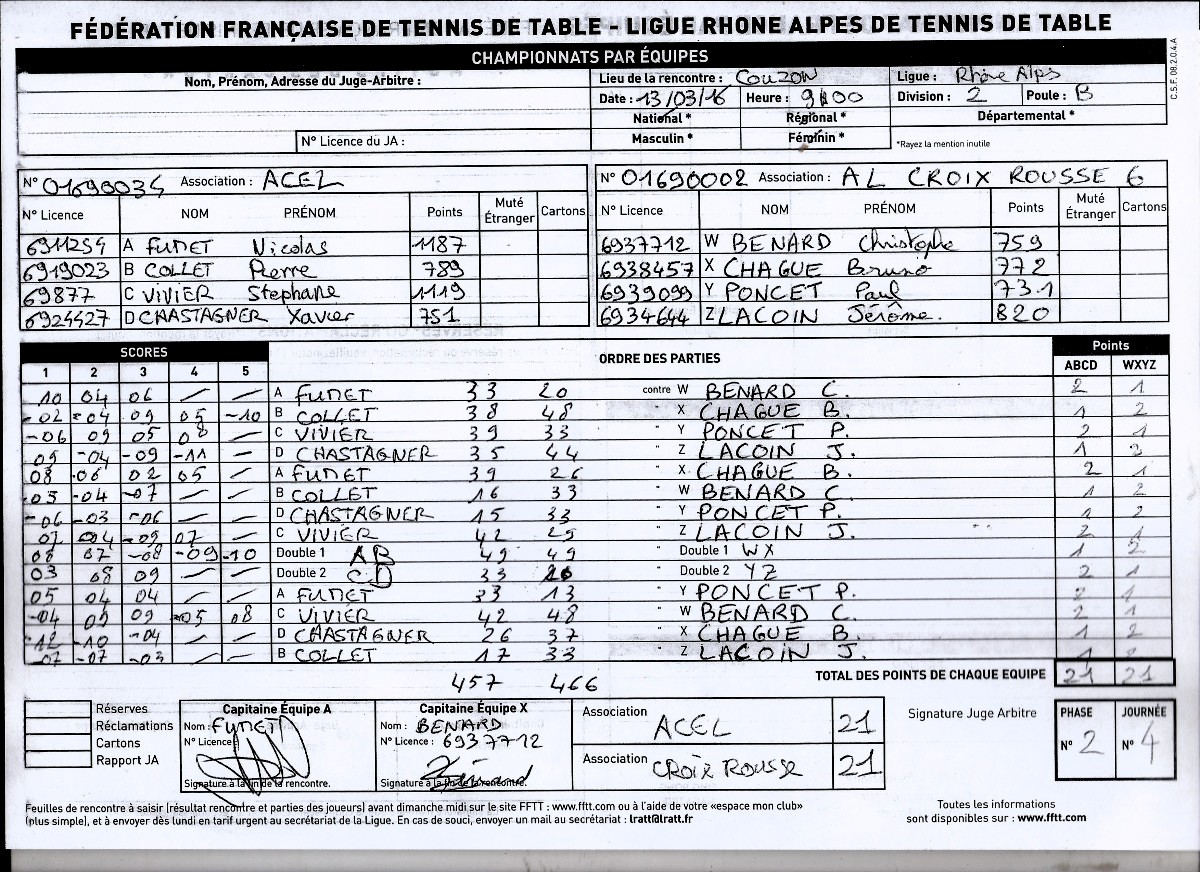 FÉDÉRATION FRANÇAISE DE TENNIS DE TABLE - LIGUE RHONE ALPES DE TENNIS DE TABLE
CHAMPIONNATS PAR ÉQUIPES
C.S.F. 08.2.0.4.A
Nom, Prénom, Adresse du Juge-Arbitre :
Lieu de la rencontre : Couzon Ligue : Rhône Alps
Date : 13/03/16 Heure : 9H00 Division : 2 Poule : B
National * Régional * Départemental *
N° Licence du JA : Masculin * Féminin * *Rayez la mention inutile
N° 01690034 Association : ACEL N° 01690002 Association : AL CROIX ROUSSE 6
N° Licence NOM PRÉNOM Points Muté Étranger Cartons N° Licence NOM PRÉNOM Points Muté Étranger Cartons
6911259 A FUNET Nicolas 1187 6937712 W BENARD Christophe 759
6919023 B COLLET Pierre 789 6938457 X CHAGUE Bruno 772
69877 C VIVIER Stephane 1119 6939099 Y PONCET Paul 731
6924427 D CHASTAGNER Xavier 751 6934644 Z LACOIN Jérôme. 820
SCORES ORDRE DES PARTIES Points
1 2 3 4 5 ABCD WXYZ
10 04 06 — — A FUNET 33 20 contre W BENARD C. 2 1
-02 -04 09 05 -10 B COLLET 38 48 " X CHAGUE B. 1 2
-06 09 05 08 — C VIVIER 39 33 " Y PONCET P. 2 1
09 -04 -09 -11 — D CHASTAGNER 35 44 " Z LACOIN J. 1 2
08 -06 02 05 — A FUNET 39 26 " X CHAGUE B. 2 1
-05 -04 -07 — — B COLLET 16 33 " W BENARD C. 1 2
-06 -03 -06 — — D CHASTAGNER 15 33 " Y PONCET P. 1 2
07 -04 -09 07 — C VIVIER 42 29 " Z LACOIN J. 2 1
08 07 -08 -09 -10 Double 1 AB 49 49 " Double 1 WX 1 2
03 08 09 — — Double 2 CD 33 20 " Double 2 YZ 2 1
05 04 04 — — A FUNET 33 13 " Y PONCET P. 2 1
-04 09 09 -05 08 C VIVIER 42 48 " W BENARD C. 2 1
-12 -10 -04 — — D CHASTAGNER 26 37 " X CHAGUE B. 1 2
-07 -07 -03 — — B COLLET 17 33 " Z LACOIN J. 1 2
457 466 TOTAL DES POINTS DE CHAQUE EQUIPE 21 21
Réserves
Réclamations
Cartons
Rapport JA
Capitaine Équipe A
Nom : FUNET
N° Licence :
Signature à la fin de la rencontre.
Capitaine Équipe X
Nom : BENARD
N° Licence : 6937712
Signature à la fin de la rencontre.
Association ACEL 21
Association CROIX ROUSSE 21
Signature Juge Arbitre
PHASE N° 2
JOURNÉE N° 4
Feuilles de rencontre à saisir (résultat rencontre et parties des joueurs) avant dimanche midi sur le site FFTT : www.fftt.com ou à l'aide de votre «espace mon club»
(plus simple), et à envoyer dès lundi en tarif urgent au secrétariat de la Ligue. En cas de souci, envoyer un mail au secrétariat : lratt@lratt.fr
Toutes les informations
sont disponibles sur : www.fftt.com